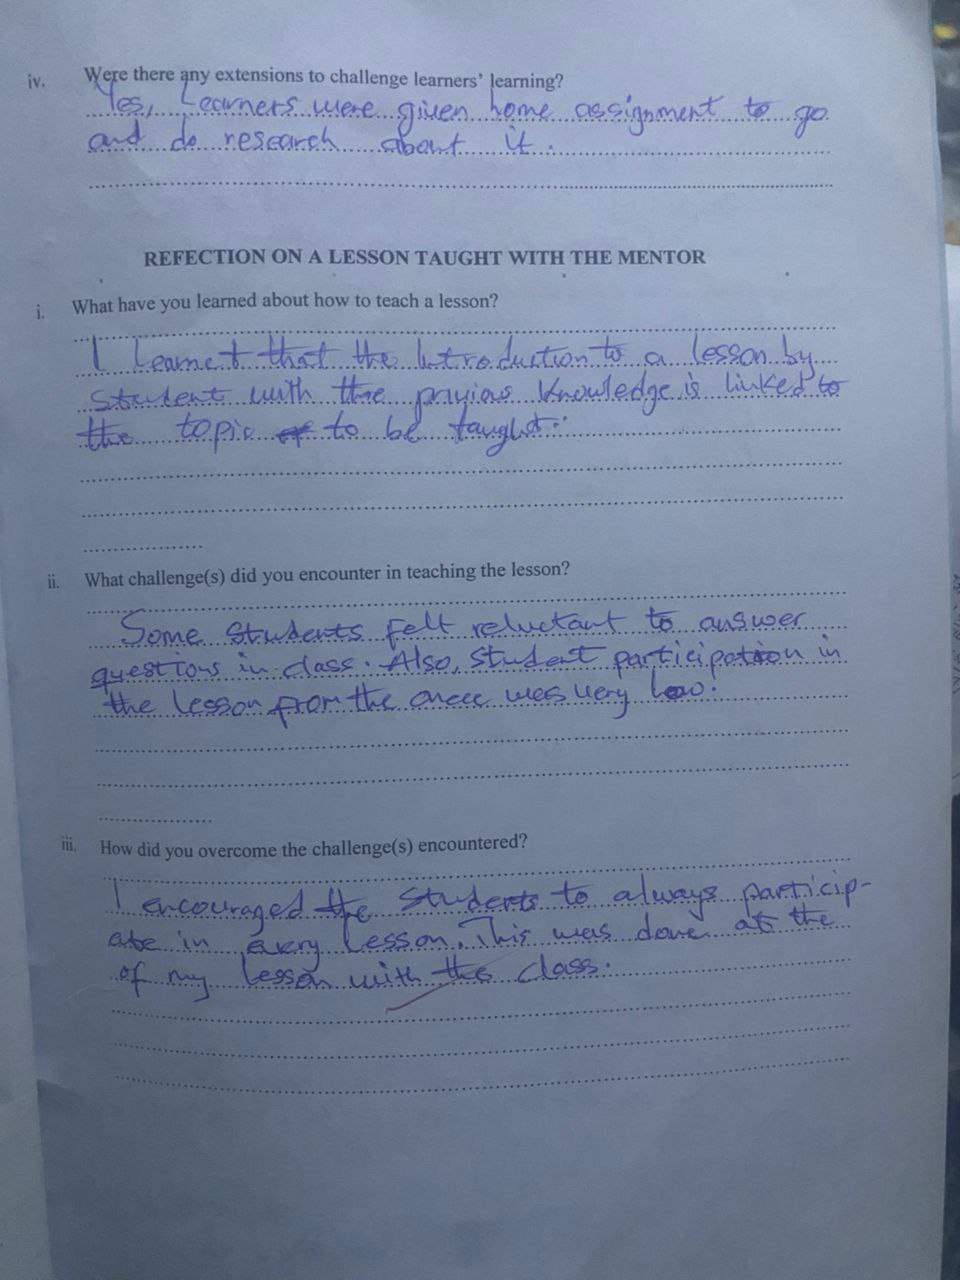 iv. Were there any extensions to challenge learners' learning?
Yes, Learners were given home assignment to go
and do research about it.
REFECTION ON A LESSON TAUGHT WITH THE MENTOR
i. What have you learned about how to teach a lesson?
I learnet that the Introduction to a lesson by
student with the previous knowledge is linked to
the topic of to be taught.
ii. What challenge(s) did you encounter in teaching the lesson?
Some students felt reluctant to answer
questions in class. Also, student participation in
the lesson from the was very low.
iii. How did you overcome the challenge(s) encountered?
I encouraged the students to always particip-
ate in every lesson. This was done at the
of my lesson with the class.